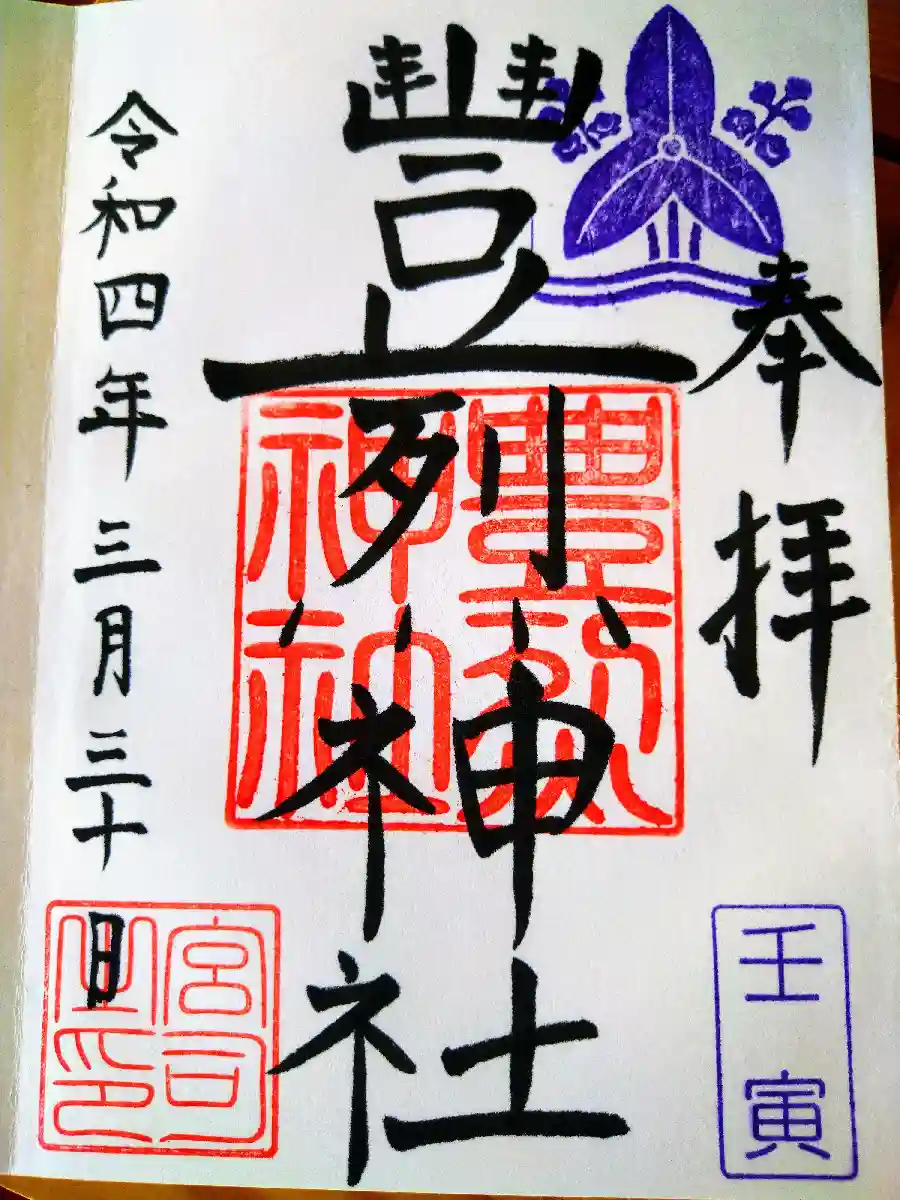 奉拝
壬寅
豐烈神社
豊烈
神社
令和四年三月三十日
宮司
之印